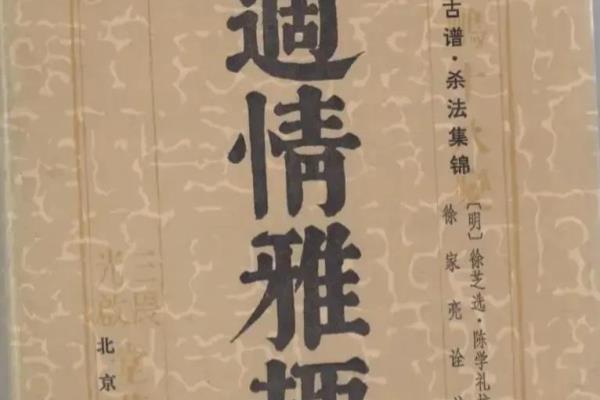 古谱·杀法集锦
〔明〕徐芝选·陈学礼
徐家亮诠
適情雅
北京